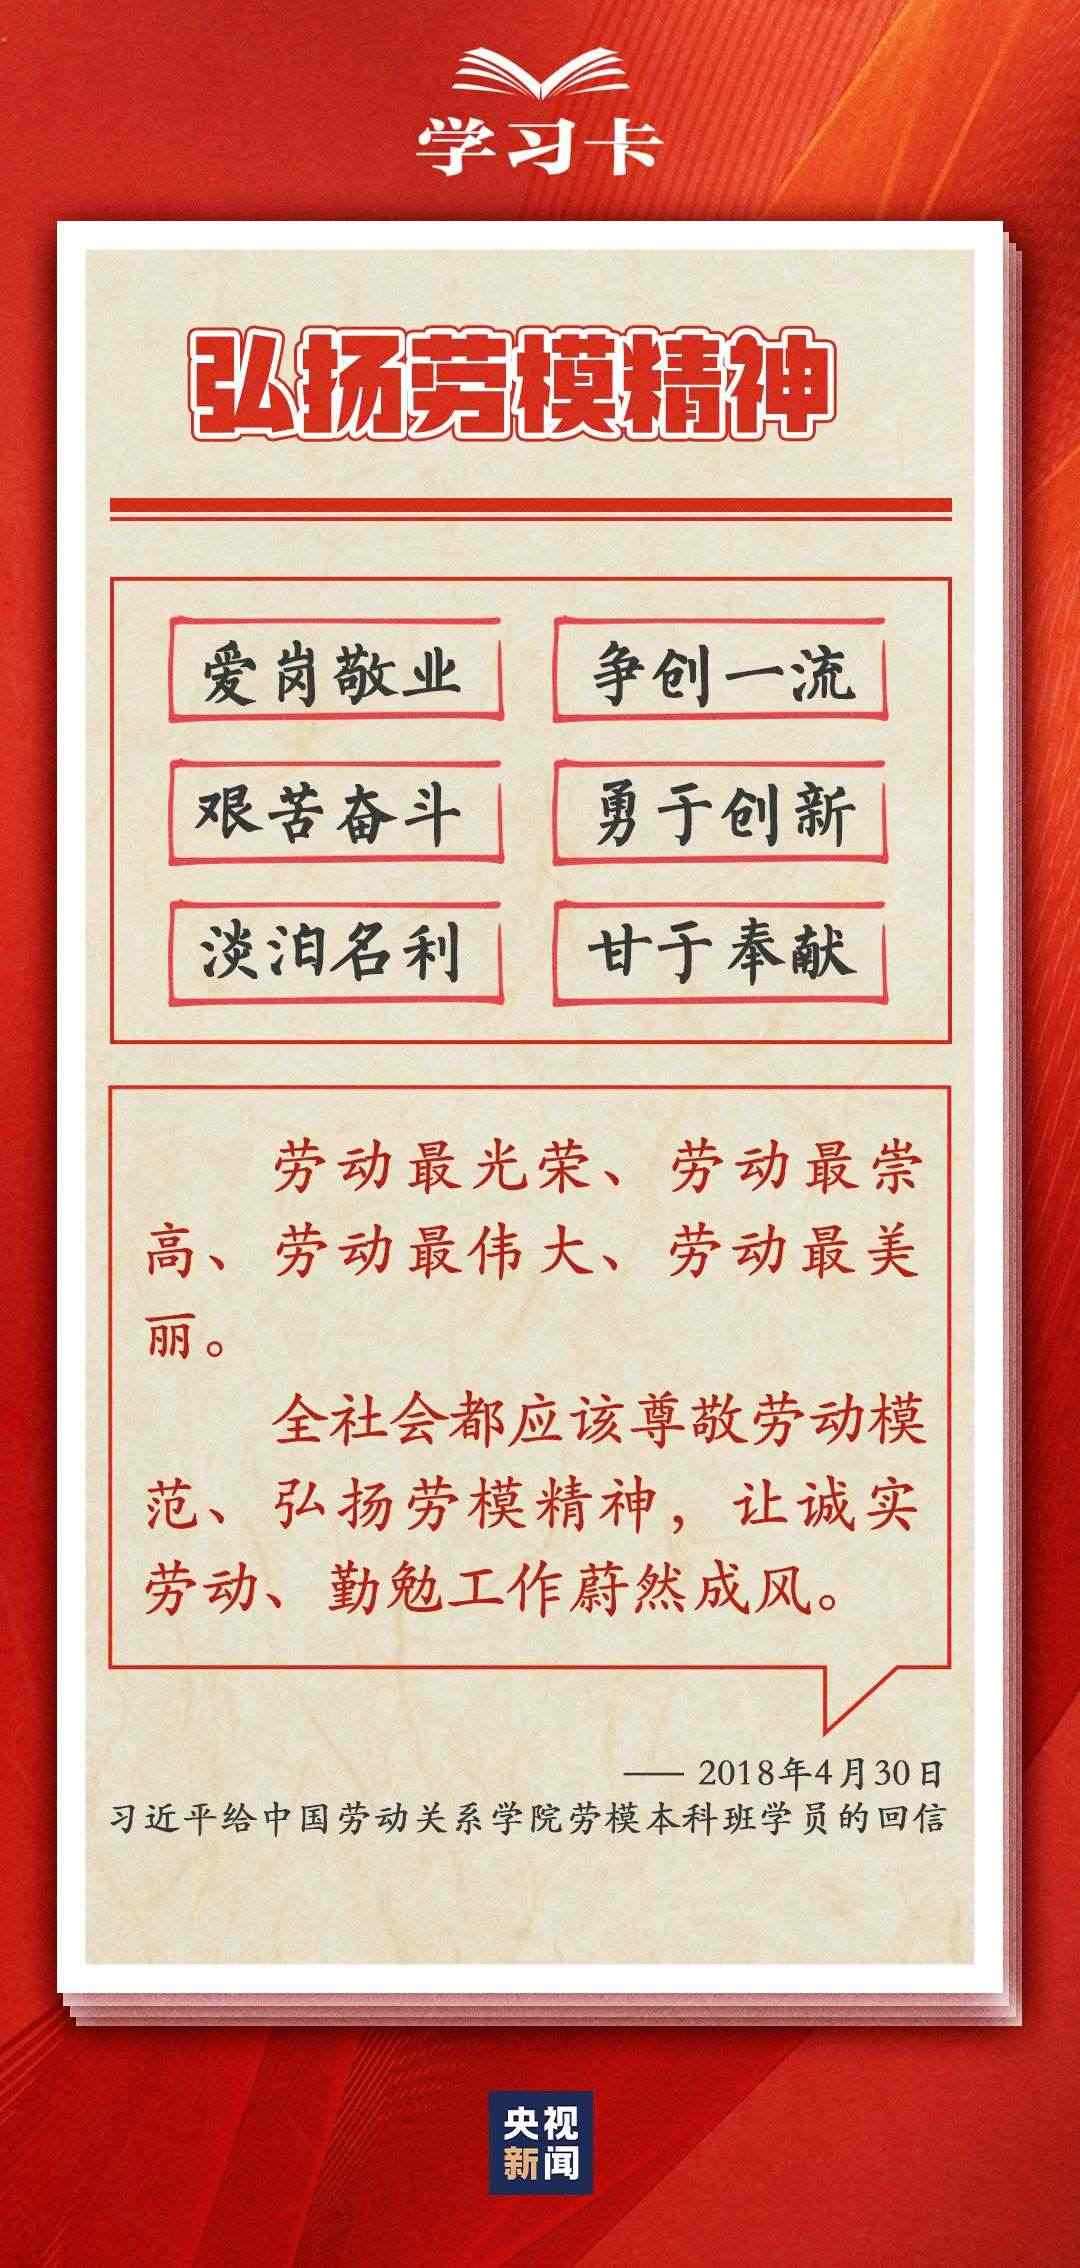 学习卡
弘扬劳模精神
爱岗敬业 争创一流
艰苦奋斗 勇于创新
淡泊名利 甘于奉献
劳动最光荣、劳动最崇
高、劳动最伟大、劳动最美
丽。
全社会都应该尊敬劳动模
范、弘扬劳模精神，让诚实
劳动、勤勉工作蔚然成风。
—— 2018年4月30日
习近平给中国劳动关系学院劳模本科班学员的回信
央视
新闻